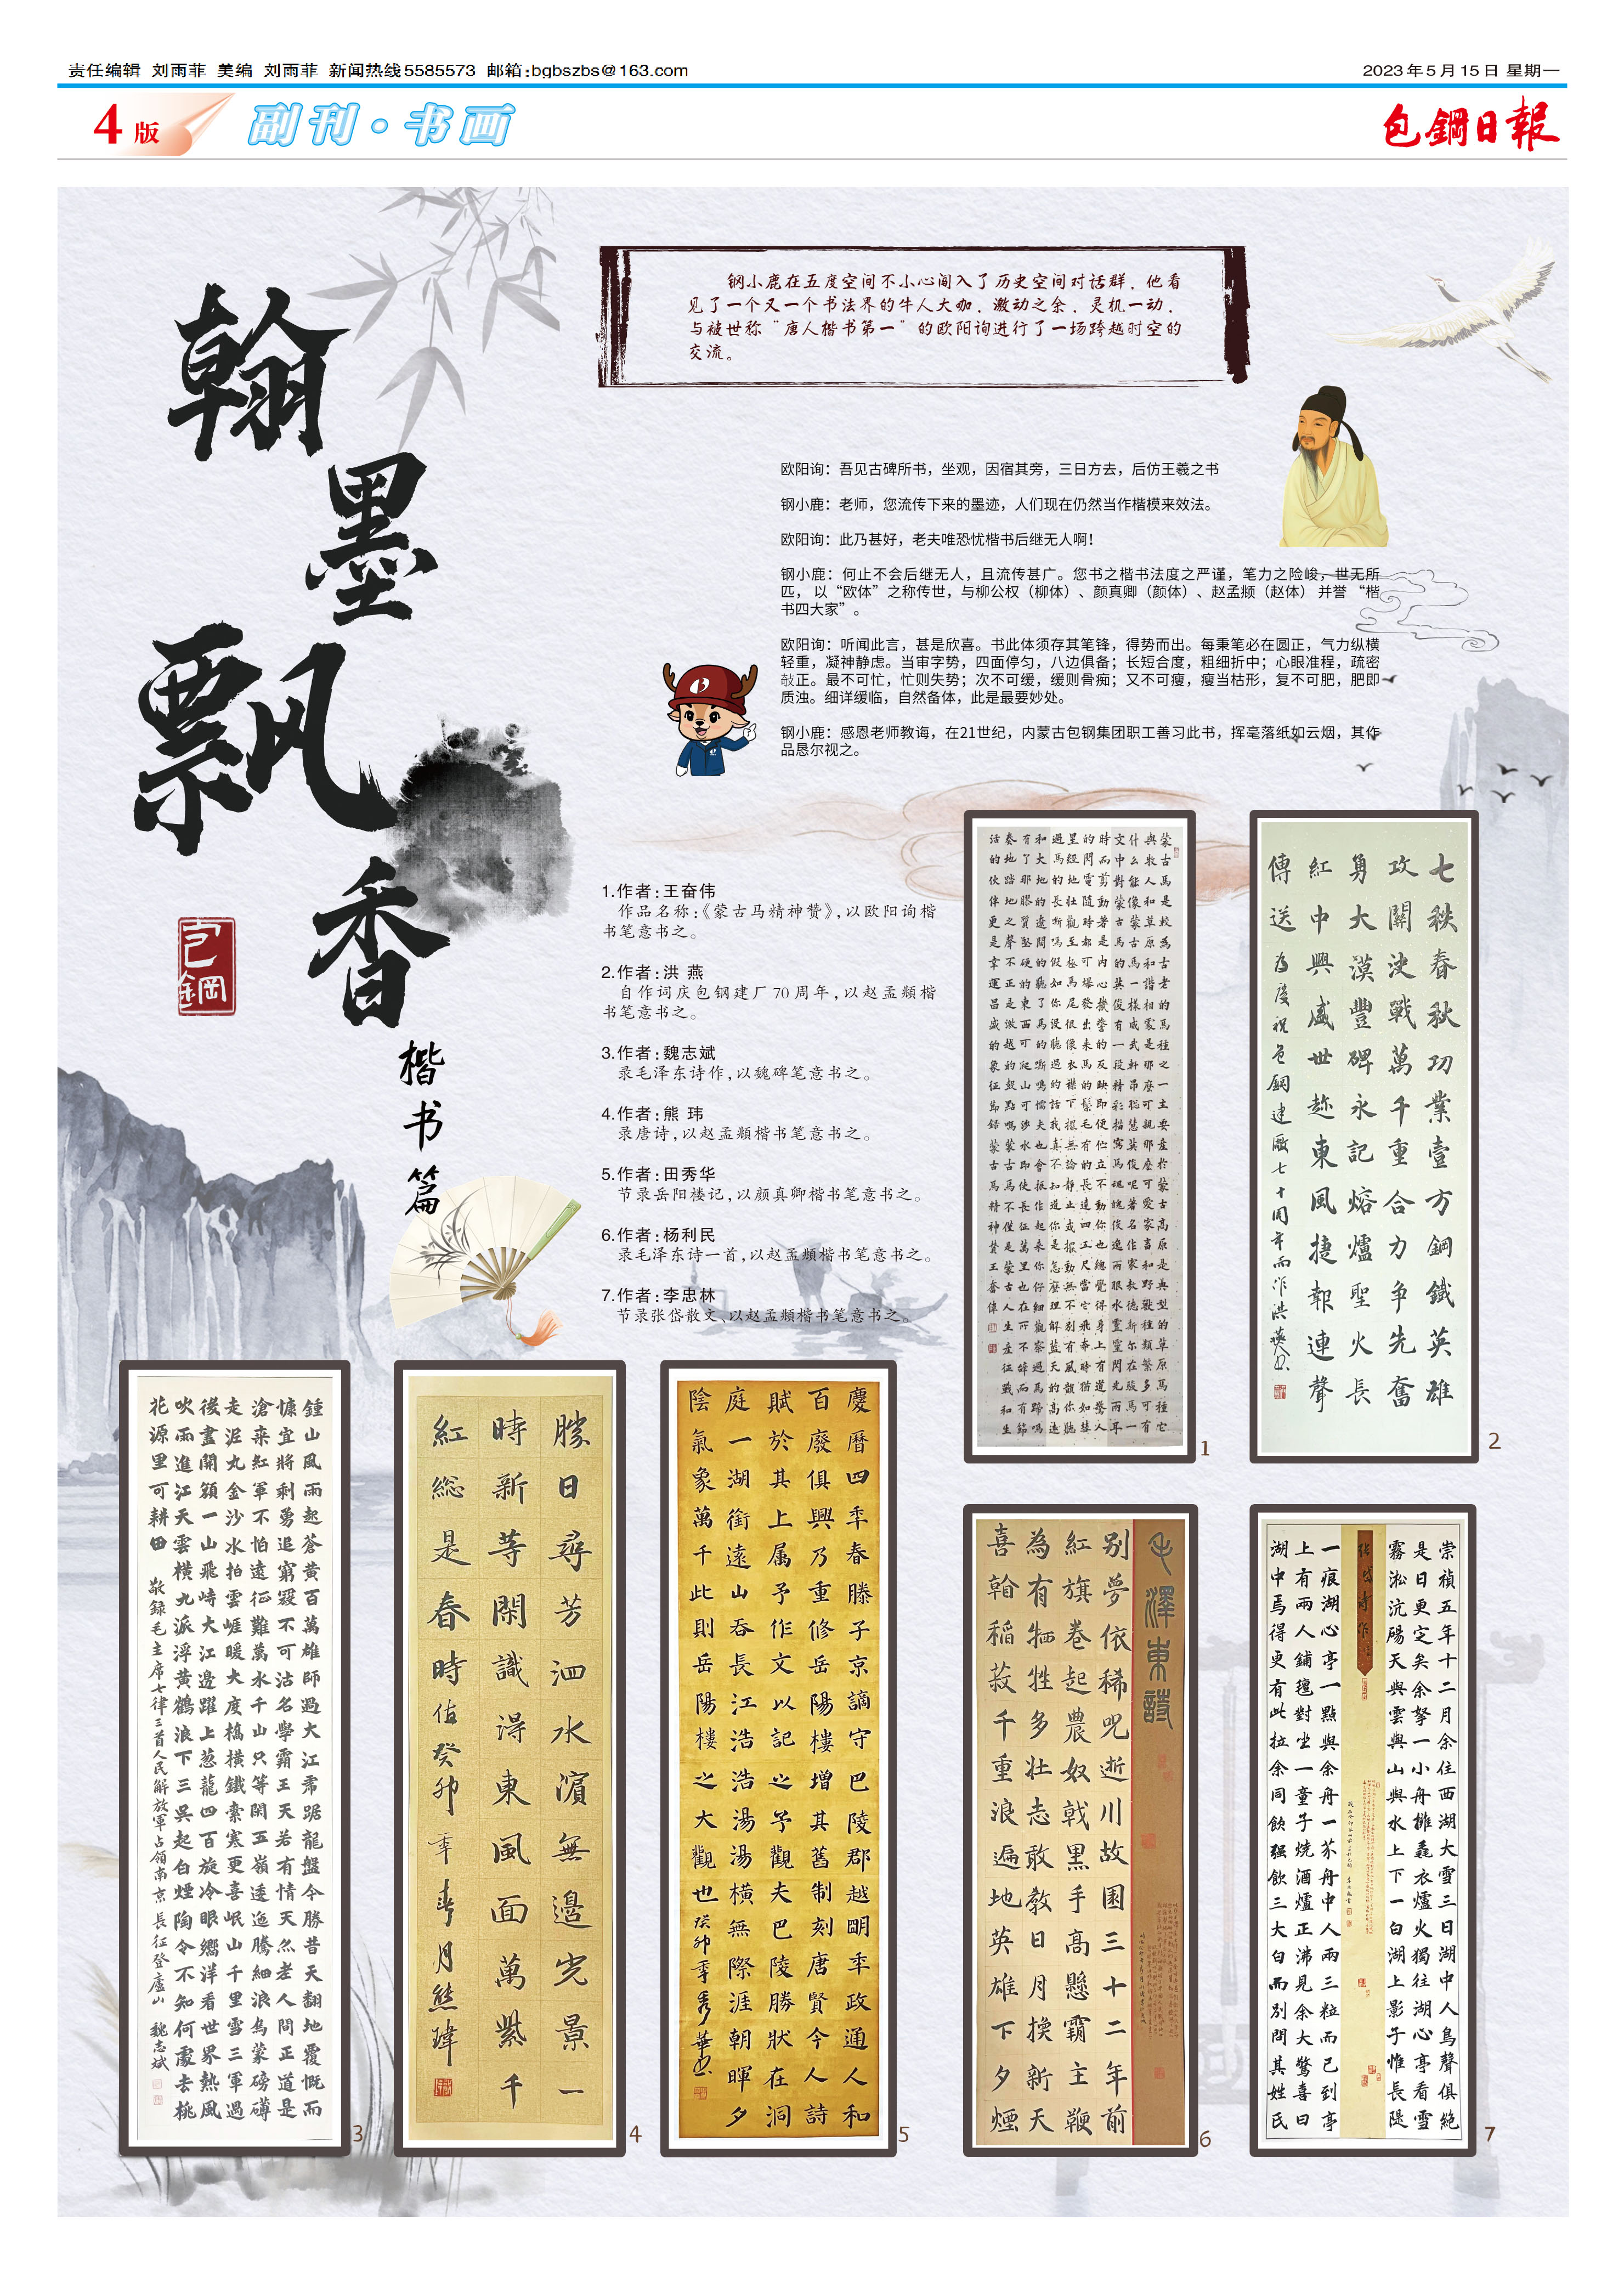 责任编辑 刘雨菲 美编 刘雨菲 新闻热线5585573 邮箱:bgbszbs@163.com
2023年5月15日 星期一
4版
副刊·书画
包鋼日報
翰墨飘香
楷书篇
包鋼
钢小鹿在五度空间不小心闯入了历史空间对话群，他看
见了一个又一个书法界的牛人大咖，激动之余，灵机一动，
与被世称“唐人楷书第一”的欧阳询进行了一场跨越时空的
交流。
欧阳询：吾见古碑所书，坐观，因宿其旁，三日方去，后仿王羲之书
钢小鹿：老师，您流传下来的墨迹，人们现在仍然当作楷模来效法。
欧阳询：此乃甚好，老夫唯恐忧楷书后继无人啊！
钢小鹿：何止不会后继无人，且流传甚广。您书之楷书法度之严谨，笔力之险峻，世无所
匹，以“欧体”之称传世，与柳公权（柳体）、颜真卿（颜体）、赵孟頫（赵体） 并誉 “楷
书四大家”。
欧阳询：听闻此言，甚是欣喜。书此体须存其笔锋，得势而出。每秉笔必在圆正，气力纵横
轻重，凝神静虑。当审字势，四面停匀，八边俱备；长短合度，粗细折中；心眼准程，疏密
攲正。最不可忙，忙则失势；次不可缓，缓则骨痴；又不可瘦，瘦当枯形，复不可肥，肥即
质浊。细详缓临，自然备体，此是最要妙处。
钢小鹿：感恩老师教诲，在21世纪，内蒙古包钢集团职工善习此书，挥毫落纸如云烟，其作
品恳尔视之。
1.作者：王奋伟
作品名称：《蒙古马精神赞》，以欧阳询楷
书笔意书之。
2.作者：洪 燕
自作词庆包钢建厂70周年，以赵孟頫楷
书笔意书之。
3.作者：魏志斌
录毛泽东诗作，以魏碑笔意书之。
4.作者：熊 玮
录唐诗，以赵孟頫楷书笔意书之。
5.作者：田秀华
节录岳阳楼记，以颜真卿楷书笔意书之。
6.作者：杨利民
录毛泽东诗一首，以赵孟頫楷书笔意书之。
7.作者：李忠林
节录张岱散文、以赵孟頫楷书笔意书之。
1
七秩春秋功業壹方鋼鐵英雄
攻關決戰萬千重合力争先奮
勇大漠豐碑永記熔爐聖火長
紅中興盛世趂東風捷報連聲
傳送 為慶祝包鋼建廠七十周年而作洪燕書
2
鍾山風雨起蒼黄百萬雄師過大江虎踞龍盤今勝昔天翻地覆慨而
慷宜將剩勇追窮寇不可沽名學霸王天若有情天亦老人間正道是
滄桒紅軍不怕遠征難萬水千山只等閑五嶺逶迤騰細浪烏蒙磅礴
走泥丸金沙水拍雲崖暖大度橋横鐵索寒更喜岷山千里雪三軍過
後盡開顔一山飛峙大江邊躍上葱蘢四百旋冷眼嚮洋看世界熱風
吹雨進江天雲横九派浮黄鶴浪下三吳起白煙陶令不知何處去桃
花源里可耕田 敬録毛主席七律三首人民解放軍占領南京 長征登廬山 魏志斌
3
勝日尋芳泗水濱無邊光景一
時新等閑識得東風面萬紫千
紅総是春 時值癸卯年春月熊瑋
4
慶曆四年春滕子京謫守巴陵郡越明年政通人和
百廢俱興乃重修岳陽樓增其舊制刻唐賢今人詩
賦於其上属予作文以記之予觀夫巴陵勝狀在洞
庭一湖銜遠山吞長江浩浩湯湯横無際涯朝暉夕
陰氣象萬千此則岳陽樓之大觀也 癸卯季秀華書
5
毛澤東詩
别夢依稀咒逝川故園三十二年前
紅旗卷起農奴戟黑手高懸霸主鞭
為有牺牲多壮志敢教日月換新天
喜看稻菽千重浪遍地英雄下夕煙
6
崇禎五年十二月余住西湖大雪三日湖中人鳥聲俱絶
是日更定矣余拏一小舟擁毳衣爐火獨往湖心亭看雪
霧淞沆碭天與雲與山與水上下一白湖上影子惟長堤
一痕湖心亭一點與余舟一芥舟中人兩三粒而已到亭
上有兩人鋪氊對坐一童子燒酒爐正沸見余大驚喜曰
湖中焉得更有此拉余同飲强飲三大白而别問其姓氏
7